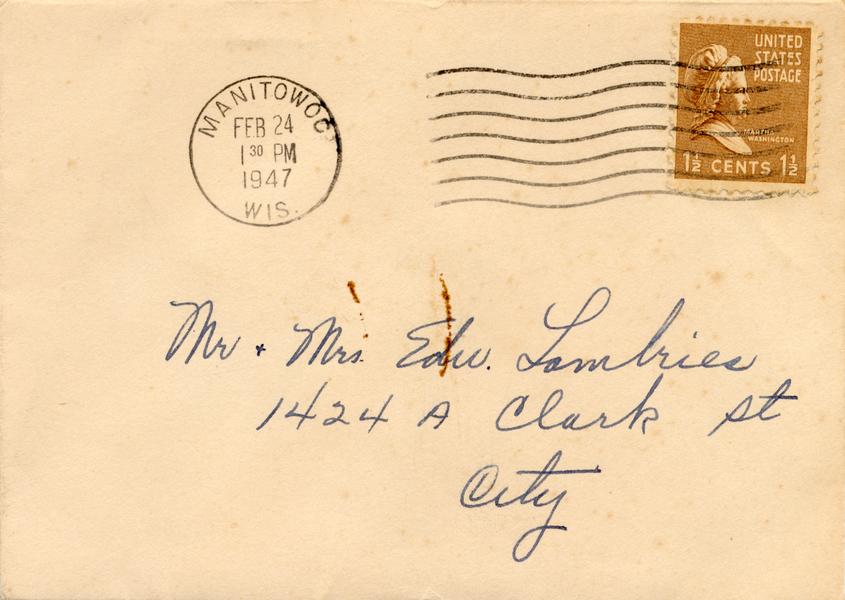 MANITOWOC
FEB 24
1 30 PM
1947
WIS.
UNITED
STATES
POSTAGE
MARTHA
WASHINGTON
1½ CENTS 1½
Mr + Mrs. Edw. Lambries
1424 A Clark St
City